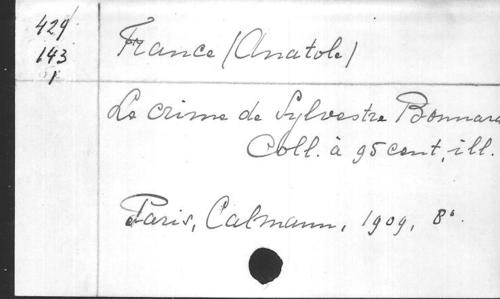 429
143
1
France (Anatole)
Le crime de Sylvestre Bonnard
Coll. à 95 cent, ill.
Paris, Calmann, 1909, 8°.